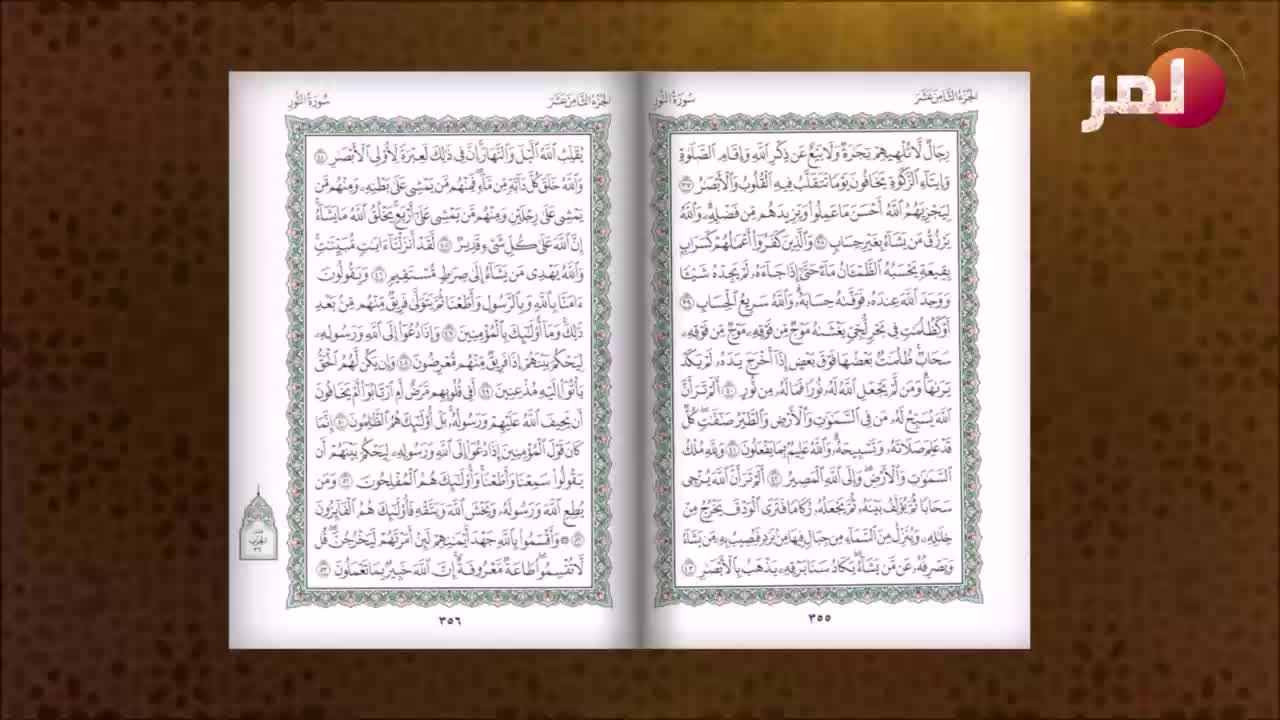 لمر
الجزء الثامن عشر
سورة النور
رِجَالٌ لَّا تُلْهِيهِمْ تِجَٰرَةٌ وَلَا بَيْعٌ عَن ذِكْرِ ٱللَّهِ وَإِقَامِ ٱلصَّلَوٰةِ
وَإِيتَآءِ ٱلزَّكَوٰةِ يَخَافُونَ يَوْمًا تَتَقَلَّبُ فِيهِ ٱلْقُلُوبُ وَٱلْأَبْصَٰرُ ٣٧
لِيَجْزِيَهُمُ ٱللَّهُ أَحْسَنَ مَا عَمِلُوا۟ وَيَزِيدَهُم مِّن فَضْلِهِۦ وَٱللَّهُ
يَرْزُقُ مَن يَشَآءُ بِغَيْرِ حِسَابٍ ٣٨ وَٱلَّذِينَ كَفَرُوٓا۟ أَعْمَٰلُهُمْ كَسَرَابٍۭ
بِقِيعَةٍ يَحْسَبُهُ ٱلظَّمْـَٔانُ مَآءً حَتَّىٰٓ إِذَا جَآءَهُۥ لَمْ يَجِدْهُ شَيْـًٔا
وَوَجَدَ ٱللَّهَ عِندَهُۥ فَوَفَّىٰهُ حِسَابَهُۥ وَٱللَّهُ سَرِيعُ ٱلْحِسَابِ ٣٩
أَوْ كَظُلُمَٰتٍ فِى بَحْرٍ لُّجِّىٍّ يَغْشَىٰهُ مَوْجٌ مِّن فَوْقِهِۦ مَوْجٌ مِّن فَوْقِهِۦ
سَحَابٌ ظُلُمَٰتٌۢ بَعْضُهَا فَوْقَ بَعْضٍ إِذَآ أَخْرَجَ يَدَهُۥ لَمْ يَكَدْ
يَرَىٰهَا وَمَن لَّمْ يَجْعَلِ ٱللَّهُ لَهُۥ نُورًا فَمَا لَهُۥ مِن نُّورٍ ٤٠ أَلَمْ تَرَ أَنَّ
ٱللَّهَ يُسَبِّحُ لَهُۥ مَن فِى ٱلسَّمَٰوَٰتِ وَٱلْأَرْضِ وَٱلطَّيْرُ صَٰٓفَّٰتٍ كُلٌّ
قَدْ عَلِمَ صَلَاتَهُۥ وَتَسْبِيحَهُۥ وَٱللَّهُ عَلِيمٌۢ بِمَا يَفْعَلُونَ ٤١ وَلِلَّهِ مُلْكُ
ٱلسَّمَٰوَٰتِ وَٱلْأَرْضِ وَإِلَى ٱللَّهِ ٱلْمَصِيرُ ٤٢ أَلَمْ تَرَ أَنَّ ٱللَّهَ يُزْجِى
سَحَابًا ثُمَّ يُؤَلِّفُ بَيْنَهُۥ ثُمَّ يَجْعَلُهُۥ رُكَامًا فَتَرَى ٱلْوَدْقَ يَخْرُجُ مِنْ
خِلَٰلِهِۦ وَيُنَزِّلُ مِنَ ٱلسَّمَآءِ مِن جِبَالٍ فِيهَا مِنۢ بَرَدٍ فَيُصِيبُ بِهِۦ مَن يَشَآءُ
وَيَصْرِفُهُۥ عَن مَّن يَشَآءُ يَكَادُ سَنَا بَرْقِهِۦ يَذْهَبُ بِٱلْأَبْصَٰرِ ٤٣
٣٥٥
الجزء الثامن عشر
سورة النور
يُقَلِّبُ ٱللَّهُ ٱلَّيْلَ وَٱلنَّهَارَ إِنَّ فِى ذَٰلِكَ لَعِبْرَةً لِّأُو۟لِى ٱلْأَبْصَٰرِ ٤٤
وَٱللَّهُ خَلَقَ كُلَّ دَآبَّةٍ مِّن مَّآءٍ فَمِنْهُم مَّن يَمْشِى عَلَىٰ بَطْنِهِۦ وَمِنْهُم مَّن
يَمْشِى عَلَىٰ رِجْلَيْنِ وَمِنْهُم مَّن يَمْشِى عَلَىٰٓ أَرْبَعٍ يَخْلُقُ ٱللَّهُ مَا يَشَآءُ
إِنَّ ٱللَّهَ عَلَىٰ كُلِّ شَىْءٍ قَدِيرٌ ٤٥ لَّقَدْ أَنزَلْنَآ ءَايَٰتٍ مُّبَيِّنَٰتٍ
وَٱللَّهُ يَهْدِى مَن يَشَآءُ إِلَىٰ صِرَٰطٍ مُّسْتَقِيمٍ ٤٦ وَيَقُولُونَ
ءَامَنَّا بِٱللَّهِ وَبِٱلرَّسُولِ وَأَطَعْنَا ثُمَّ يَتَوَلَّىٰ فَرِيقٌ مِّنْهُم مِّنۢ بَعْدِ
ذَٰلِكَ وَمَآ أُو۟لَٰٓئِكَ بِٱلْمُؤْمِنِينَ ٤٧ وَإِذَا دُعُوٓا۟ إِلَى ٱللَّهِ وَرَسُولِهِۦ
لِيَحْكُمَ بَيْنَهُمْ إِذَا فَرِيقٌ مِّنْهُم مُّعْرِضُونَ ٤٨ وَإِن يَكُن لَّهُمُ ٱلْحَقُّ
يَأْتُوٓا۟ إِلَيْهِ مُذْعِنِينَ ٤٩ أَفِى قُلُوبِهِم مَّرَضٌ أَمِ ٱرْتَابُوٓا۟ أَمْ يَخَافُونَ
أَن يَحِيفَ ٱللَّهُ عَلَيْهِمْ وَرَسُولُهُۥ بَلْ أُو۟لَٰٓئِكَ هُمُ ٱلظَّٰلِمُونَ ٥٠ إِنَّمَا
كَانَ قَوْلَ ٱلْمُؤْمِنِينَ إِذَا دُعُوٓا۟ إِلَى ٱللَّهِ وَرَسُولِهِۦ لِيَحْكُمَ بَيْنَهُمْ أَن
يَقُولُوا۟ سَمِعْنَا وَأَطَعْنَا وَأُو۟لَٰٓئِكَ هُمُ ٱلْمُفْلِحُونَ ٥١ وَمَن
يُطِعِ ٱللَّهَ وَرَسُولَهُۥ وَيَخْشَ ٱللَّهَ وَيَتَّقْهِ فَأُو۟لَٰٓئِكَ هُمُ ٱلْفَآئِزُونَ
٥٢ ۞ وَأَقْسَمُوا۟ بِٱللَّهِ جَهْدَ أَيْمَٰنِهِمْ لَئِنْ أَمَرْتَهُمْ لَيَخْرُجُنَّ قُل
لَّا تُقْسِمُوا۟ طَاعَةٌ مَّعْرُوفَةٌ إِنَّ ٱللَّهَ خَبِيرٌۢ بِمَا تَعْمَلُونَ ٥٣
٣٥٦